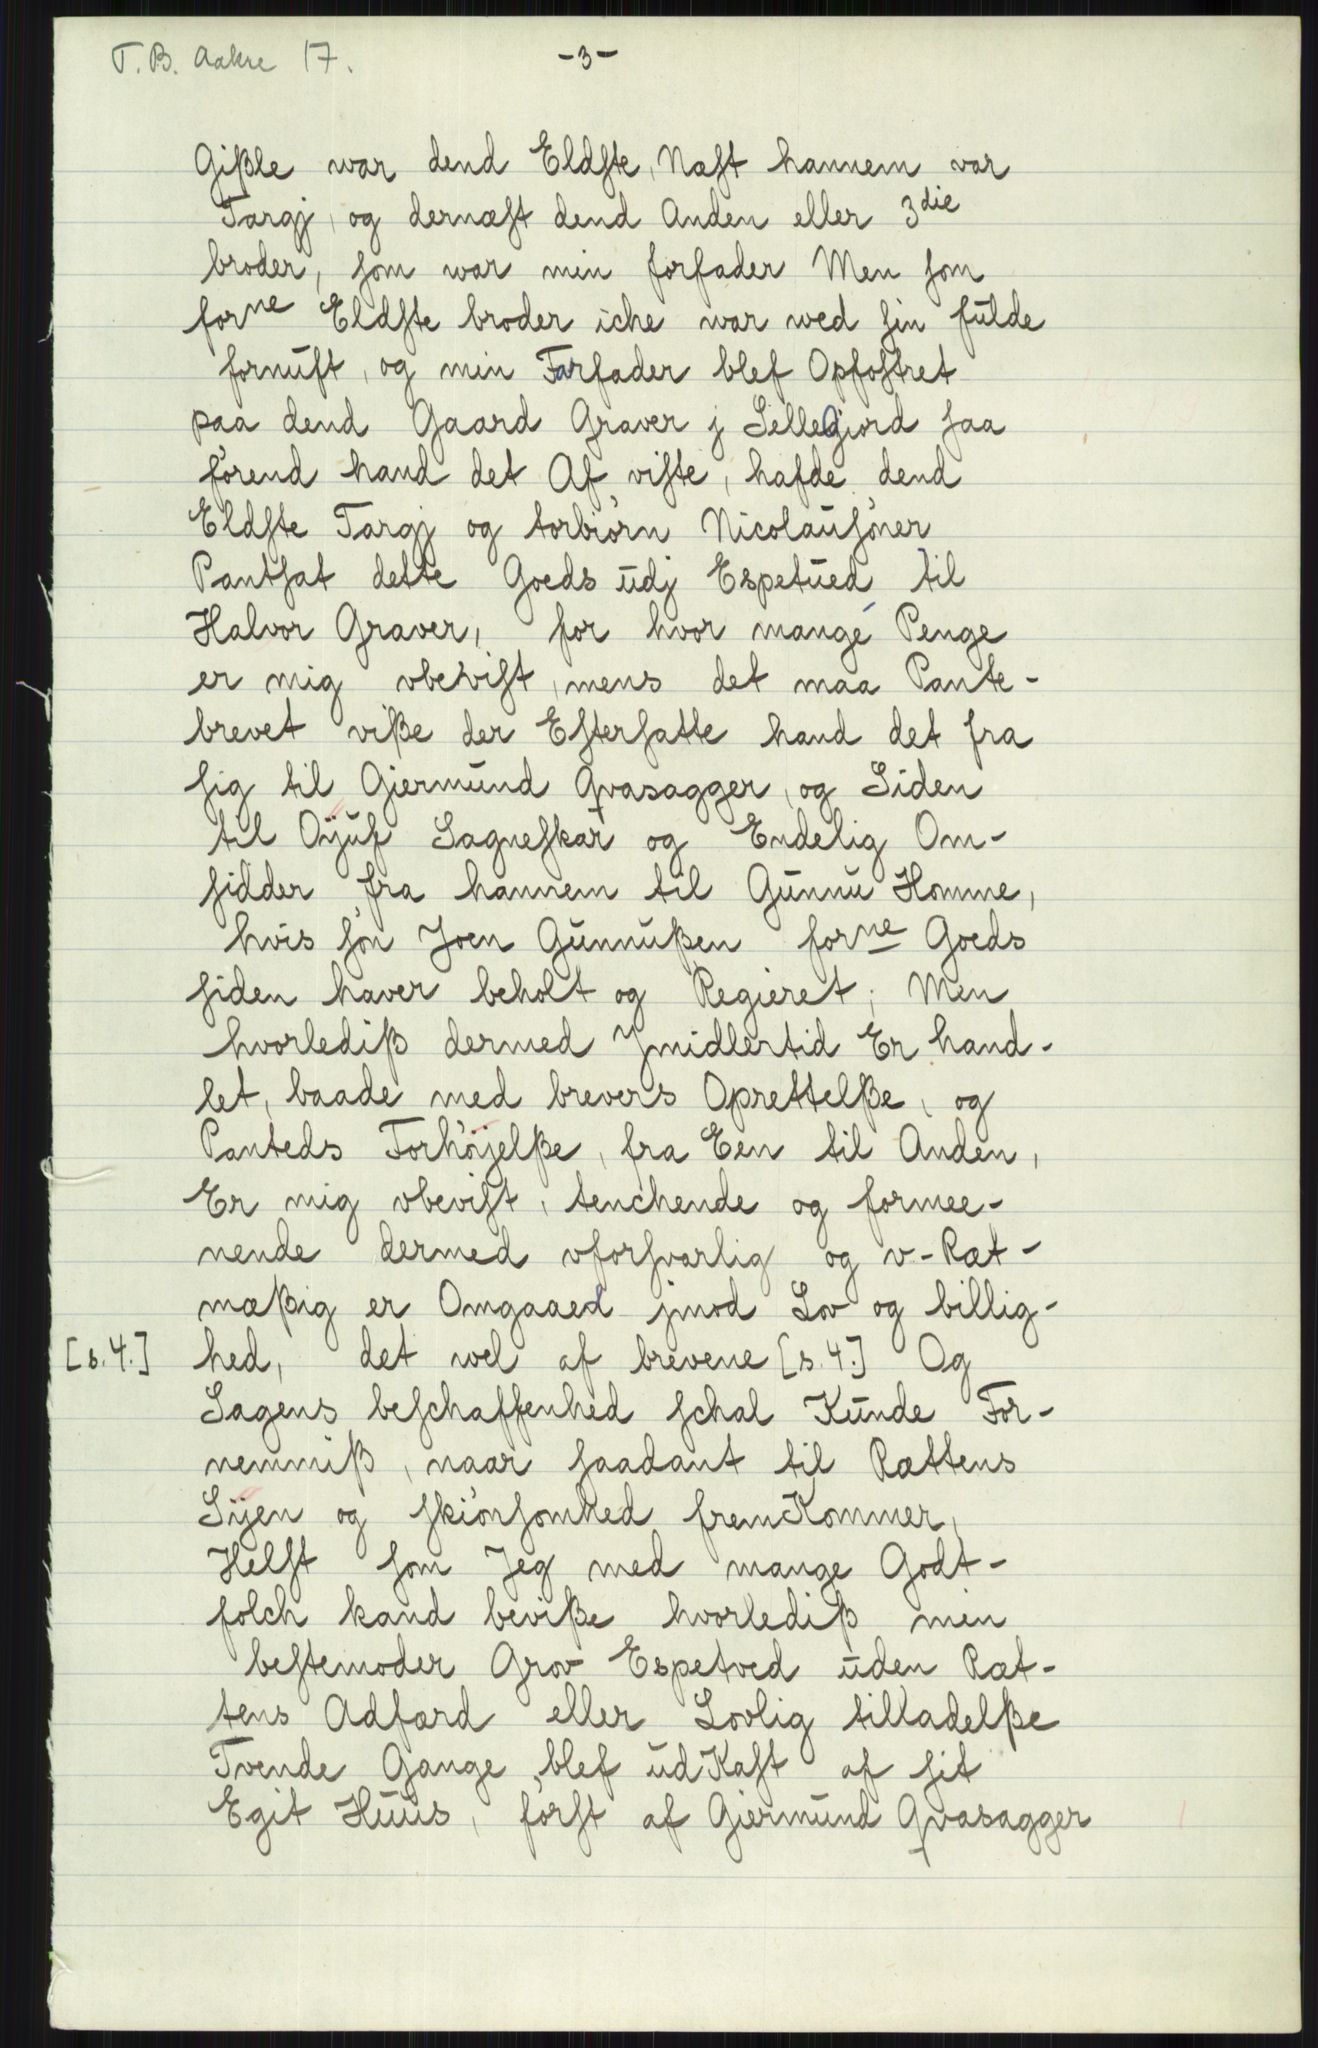 T. B. Aakre 17.
-3-
Gißle war dend Eldste, Næst hannem var
Targj, og dernæst dend Anden eller 3die
broder, som war min forfader Men som
forne Eldste broder iche war wed sin fulde
fornuft, og min Farfader blef Opfostret
paa dend Gaard Graver j Sellegjord saa
förend hand det Af viste, hafde dend
Eldste Targj og torbiörn Nicolausöner
Pantsat dette Goeds udj Espetued til
Halvor Graver, for hvor mange Penge
er mig vbevist, mens det maa Pante-
brevet viße der Eftersatte hand det fra
sig til Gjermund Qvasagger, og Siden
til Öÿuf Sagneskar og Endelig Om-
sidder fra hannem til Gunnu Homme,
hvis sön Joen Gunnußen forne Goeds
siden haver beholt og Regieret; Men
hvorlediß dermed Jmidlertid Er hand-
let, baade med brevers Oprettelße, og
Panteds Forhöjelße, fra Een til Anden,
Er mig vbevist, tenchende og formee-
nende dermed vforsvarlig og v-Ræt-
mæßig er Omgaaed jmod Lov og billig-
[s.4.] hed, det wel af brevene [s.4.] Og
Sagens beschaffenhed schal Kunde For-
nemmiß, naar saadant til Rættens
Sÿen og skiönsomhed fremKommer,
Helst som Jeg med mange Godt-
folch kand beviße hvorlediß min
bestemoder Grov Espetved uden Ræt-
tens Adfærd eller Lovlig tilladelße
Tvende Gange blef udKast af sit
Egit Huus, först af Gjermund Qvasagger